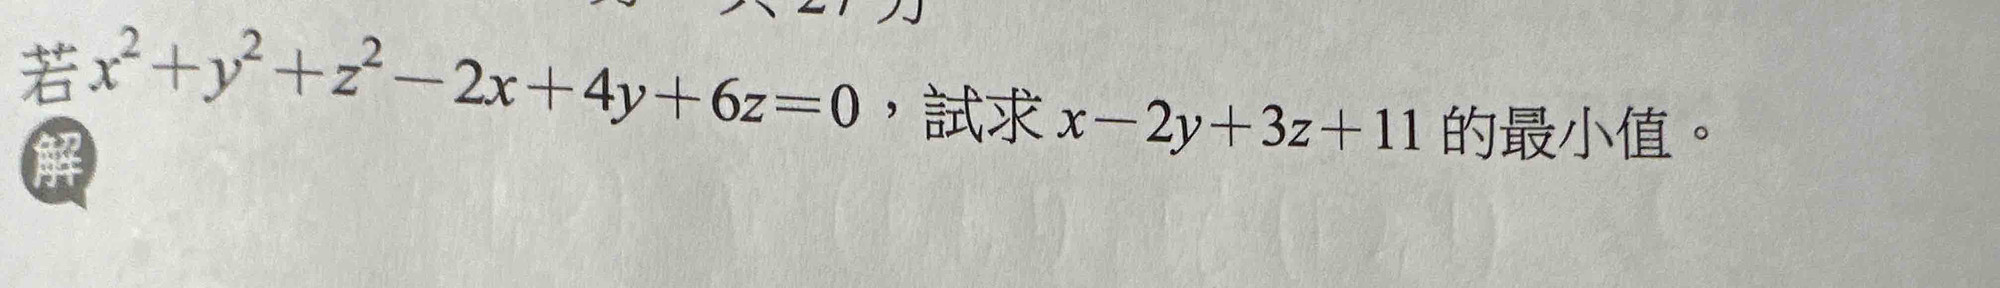 若x²+y²+z²-2x+4y+6z=0，試求 x-2y+3z+11 的最小值。
解